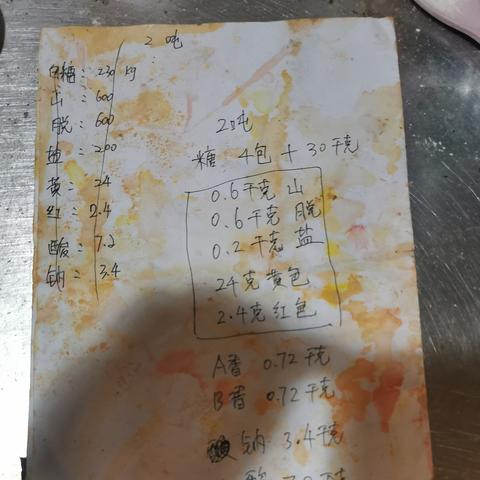 2 吨
白糖：230 kg
山：600
脱：600
盐：200
黄：24
红：2.4
酸：7.2
钠：3.4
2吨
糖 4包 + 30千克
0.6千克 山
0.6千克 脱
0.2千克 盐
24克 黄色
2.4克 红色
A香 0.72千克
B香 0.72千克
钠 3.4千克